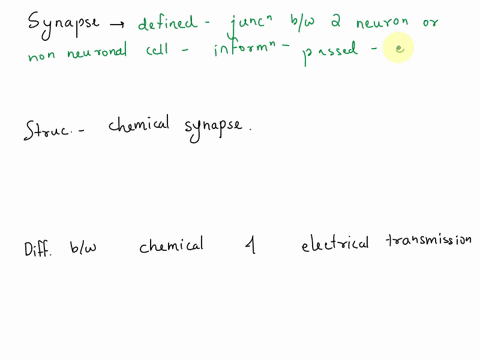 Synapse → defined - juncⁿ b/w 2 neuron or
non neuronal cell - informⁿ - passed - e
Struc. - chemical synapse.
Diff. b/w chemical & electrical transmission